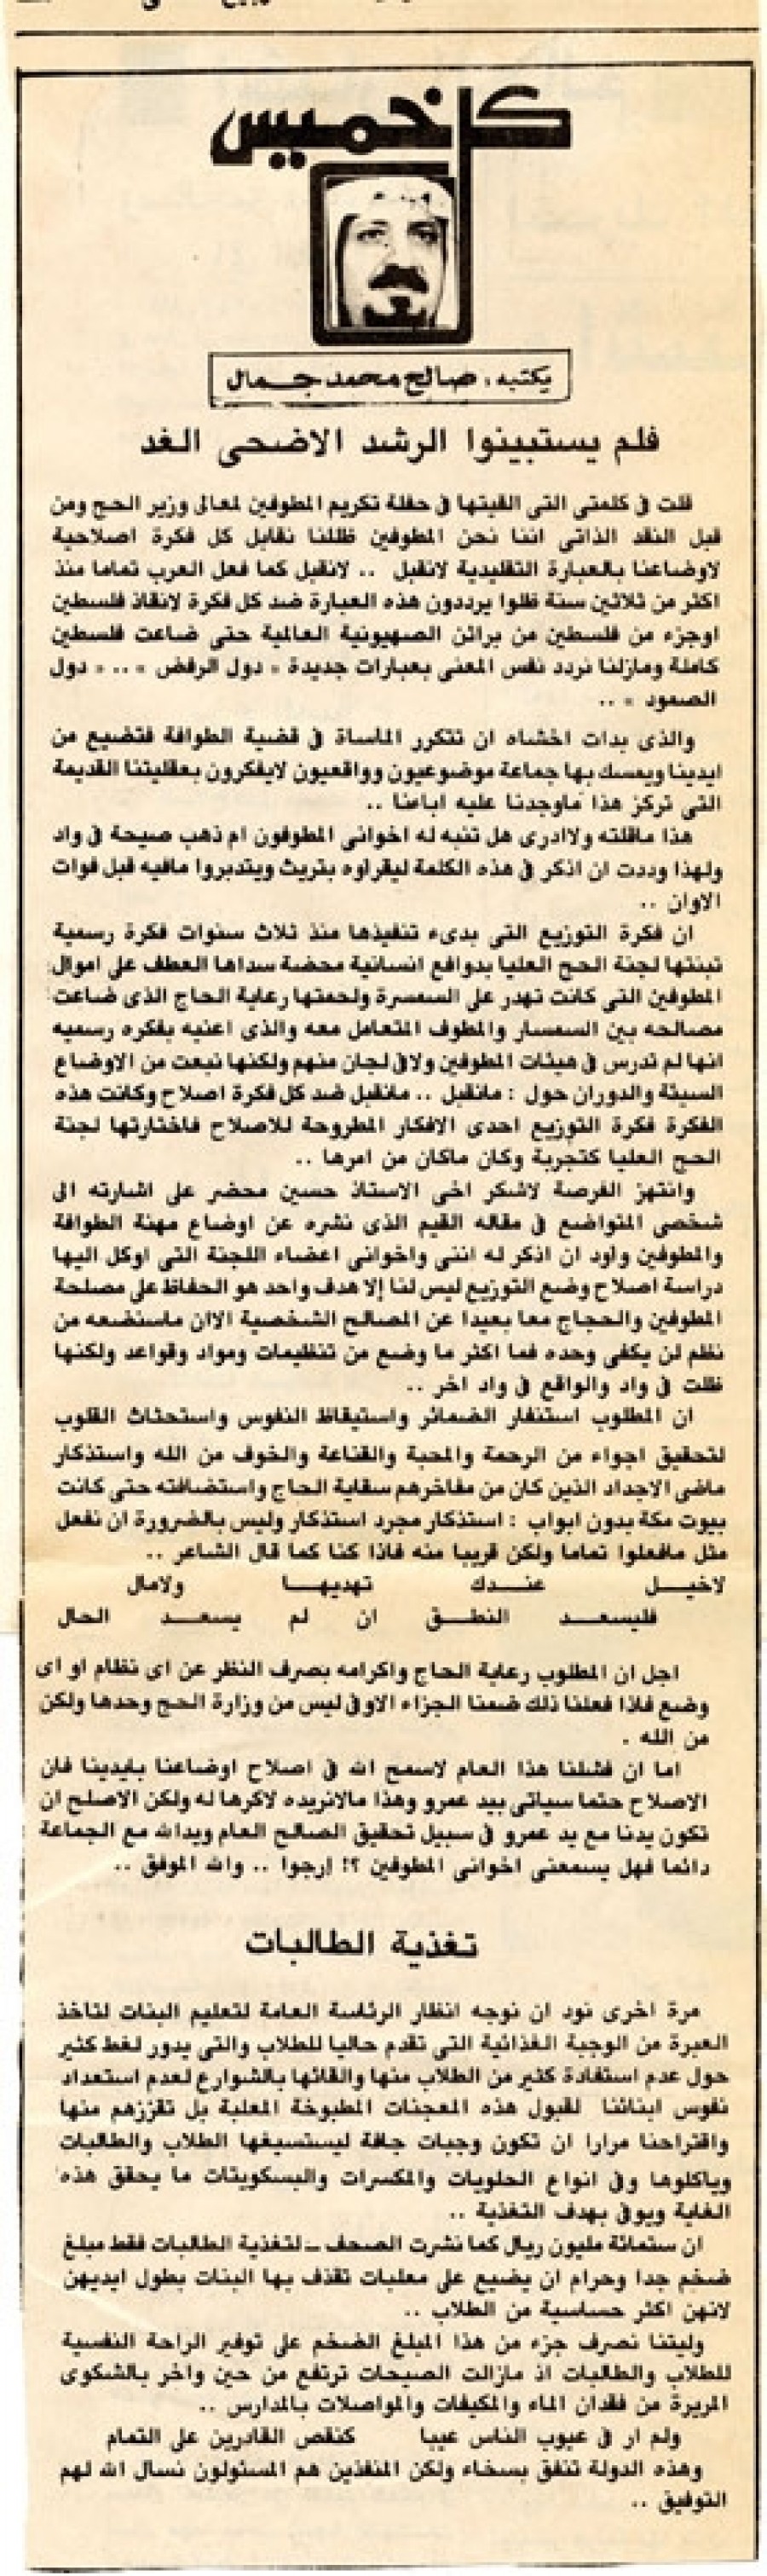 كل خميس
يكتبه : صالح محمد جمال
فلم يستبينوا الرشد الاضحى الغد
قلت في كلمتي التى القيتها في حفلة تكريم المطوفين لمعالى وزير الحج ومن
قبل النقد الذاتى اننا نحن المطوفين ظللنا نقابل كل فكرة اصلاحية
لاوضاعنا بالعبارة التقليدية لانقبل .. لانقبل كما فعل العرب تماما منذ
اكثر من ثلاثين سنة ظلوا يرددون هذه العبارة ضد كل فكرة لانقاذ فلسطين
اوجزء من فلسطين من براثن الصهيونية العالمية حتى ضاعت فلسطين
كاملة ومازلنا نردد نفس المعنى بعبارات جديدة « دول الرفض » .. « دول
الصمود » ..
والذى بدات اخشاه ان تتكرر المأساة في قضية الطوافة فتضيع من
ايدينا ويمسك بها جماعة موضوعيون وواقعيون لايفكرون بعقليتنا القديمة
التى تركز هذا ماوجدنا عليه اباءنا ..
هذا ماقلته ولاادرى هل تنبه له اخوانى المطوفون ام ذهب صيحة في واد
ولهذا وددت ان اذكر في هذه الكلمة ليقراوه بتريث ويتدبروا مافيه قبل فوات
الاوان ..
ان فكرة التوزيع التى بدىء تنفيذها منذ ثلاث سنوات فكرة رسمية
تبنتها لجنة الحج العليا بدوافع انسانية محضة سداها العطف على اموال
المطوفين التى كانت تهدر على السمسرة ولحمتها رعاية الحاج الذى ضاعت
مصالحه بين السمسار والمطوف المتعامل معه والذى اعنيه بفكره رسميه
انها لم تدرس في هيئات المطوفين ولافى لجان منهم ولكنها نبعت من الاوضاع
السيئة والدوران حول : مانقبل .. مانقبل ضد كل فكرة اصلاح وكانت هذه
الفكرة فكرة التوزيع احدى الافكار المطروحة للاصلاح فاختارتها لجنة
الحج العليا كتجربة وكان ماكان من امرها ..
وانتهز الفرصة لاشكر اخى الاستاذ حسين محضر على اشارته الى
شخصى المتواضع في مقاله القيم الذى نشره عن اوضاع مهنة الطوافة
والمطوفين واود ان اذكر له اننى واخوانى اعضاء اللجنة التى اوكل اليها
دراسة اصلاح وضع التوزيع ليس لنا إلا هدف واحد هو الحفاظ على مصلحة
المطوفين والحجاج معا بعيدا عن المصالح الشخصية الاان ماسنضعه من
نظم لن يكفى وحده فما اكثر ما وضع من تنظيمات ومواد وقواعد ولكنها
ظلت في واد والواقع في واد اخر ..
ان المطلوب استنفار الضمائر واستيقاظ النفوس واستحثاث القلوب
لتحقيق اجواء من الرحمة والمحبة والقناعة والخوف من الله واستذكار
ماضى الاجداد الذين كان من مفاخرهم سقاية الحاج واستضافته حتى كانت
بيوت مكة بدون ابواب : استذكار مجرد استذكار وليس بالضرورة ان نفعل
مثل مافعلوا تماما ولكن قريبا منه فاذا كنا كما قال الشاعر ..
لاخيل عندك تهديها ولامال
فليسعد النطق ان لم يسعد الحال
اجل ان المطلوب رعاية الحاج واكرامه بصرف النظر عن اى نظام او اى
وضع فاذا فعلنا ذلك ضمنا الجزاء الاوفى ليس من وزارة الحج وحدها ولكن
من الله .
اما ان فشلنا هذا العام لاسمح الله في اصلاح اوضاعنا بايدينا فان
الاصلاح حتما سياتى بيد عمرو وهذا مالانريده لاكرها له ولكن الاصلح ان
تكون يدنا مع يد عمرو في سبيل تحقيق الصالح العام ويدالله مع الجماعة
دائما فهل يسمعنى اخوانى المطوفين ؟! إرجوا .. والله الموفق ..
تغذية الطالبات
مرة اخرى نود ان نوجه انظار الرئاسة العامة لتعليم البنات لتاخذ
العبرة من الوجبة الغذائية التى تقدم حاليا للطلاب والتى يدور لغط كثير
حول عدم استفادة كثير من الطلاب منها والقائها بالشوارع لعدم استعداد
نفوس ابنائنا لقبول هذه المعجنات المطبوخة المعلبة بل تقززهم منها
واقتراحنا مرارا ان تكون وجبات جافة ليستسيغها الطلاب والطالبات
وياكلوها وفى انواع الحلويات والمكسرات والبسكويتات ما يحقق هذه
الغاية ويوفى بهدف التغذية ..
ان ستمائة مليون ريال كما نشرت الصحف ــ لتغذية الطالبات فقط مبلغ
ضخم جدا وحرام ان يضيع على معلبات تقذف بها البنات بطول ايديهن
لانهن اكثر حساسية من الطلاب ..
وليتنا نصرف جزء من هذا المبلغ الضخم على توفير الراحة النفسية
للطلاب والطالبات اذ مازالت الصيحات ترتفع من حين واخر بالشكوى
المريرة من فقدان الماء والمكيفات والمواصلات بالمدارس ..
ولم ار في عيوب الناس عيبا كنقص القادرين على التمام
وهذه الدولة تنفق بسخاء ولكن المنفذين هم المسئولون نسال الله لهم
التوفيق ..